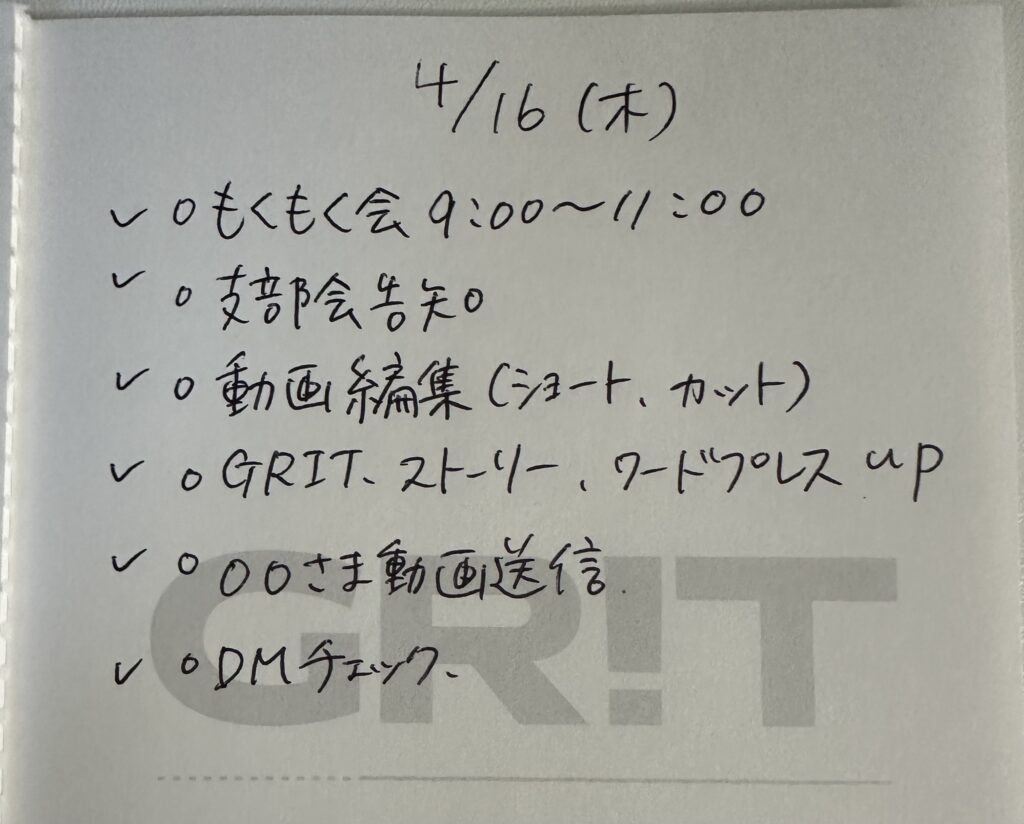 4/16(木)
✓ ○もくもく会 9:00～11:00
✓ ○支部会告知
✓ ○動画編集(ショート、カット)
✓ ○GRIT、ストーリー、ワードプレスup
✓ ○○○さま動画送信
✓ ○DMチェック、
GR!T